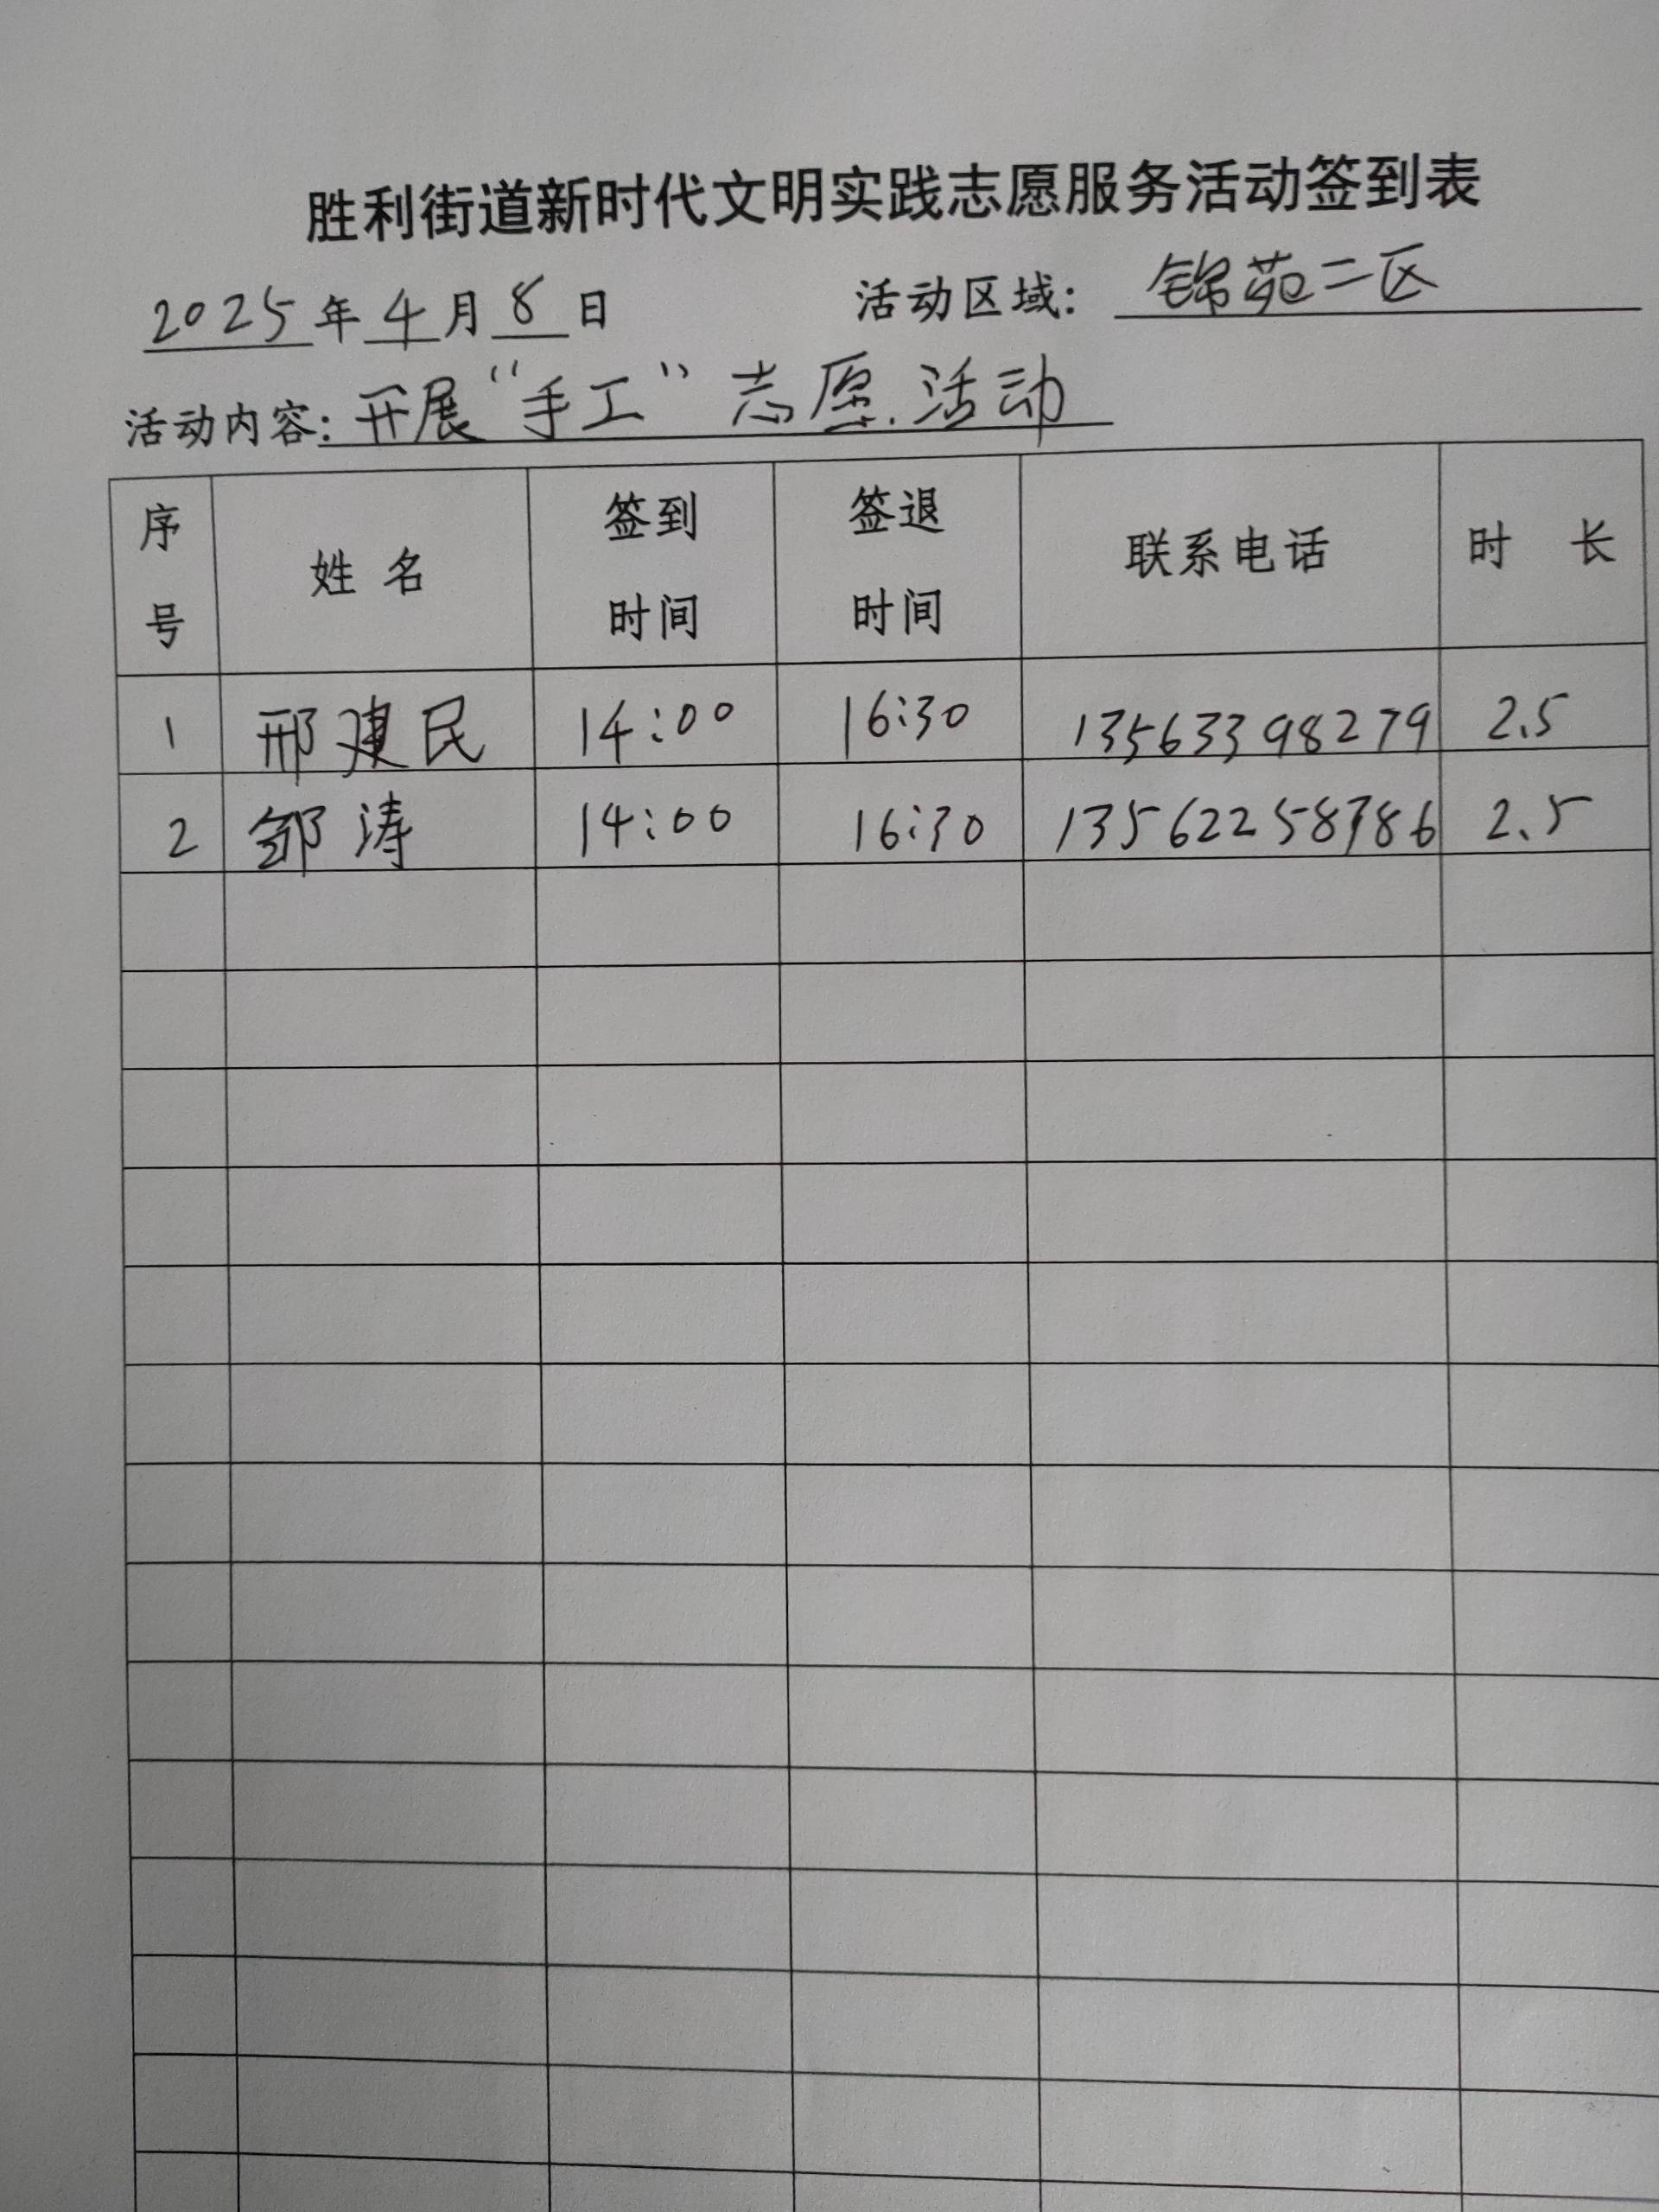 胜利街道新时代文明实践志愿服务活动签到表
2025年4月8日 活动区域：锦苑二区
活动内容：开展“手工”志愿活动
序号 姓名 签到时间 签退时间 联系电话 时长
1 邢建民 14:00 16:30 13563398279 2.5
2 邹涛 14:00 16:30 13562258786 2.5